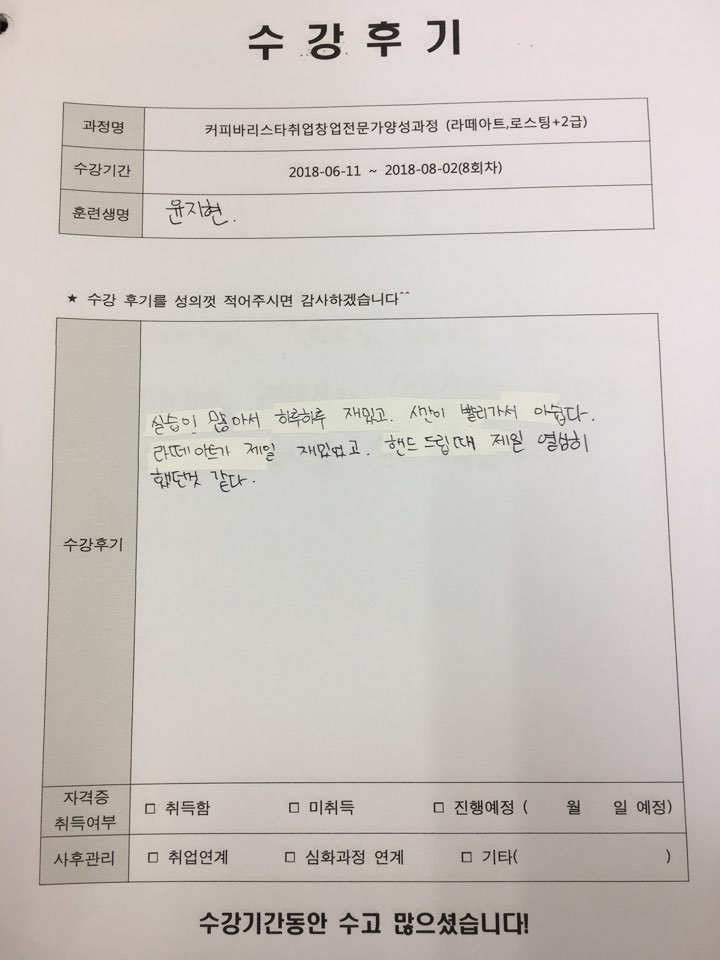 수강후기
과정명 커피바리스타취업창업전문가양성과정 (라떼아트,로스팅+2급)
수강기간 2018-06-11 ~ 2018-08-02(8회차)
훈련생명 윤지현.
★ 수강 후기를 성의껏 적어주시면 감사하겠습니다^^
실습이 많아서 하루하루 재밌고. 시간이 빨리가서 아쉽다.
라떼아트가 제일 재밌었고. 핸드드립때 제일 열심히
했던것 같다.
수강후기
자격증 취득여부 □ 취득함 □ 미취득 □ 진행예정 ( 월 일 예정)
사후관리 □ 취업연계 □ 심화과정 연계 □ 기타( )
수강기간동안 수고 많으셨습니다!